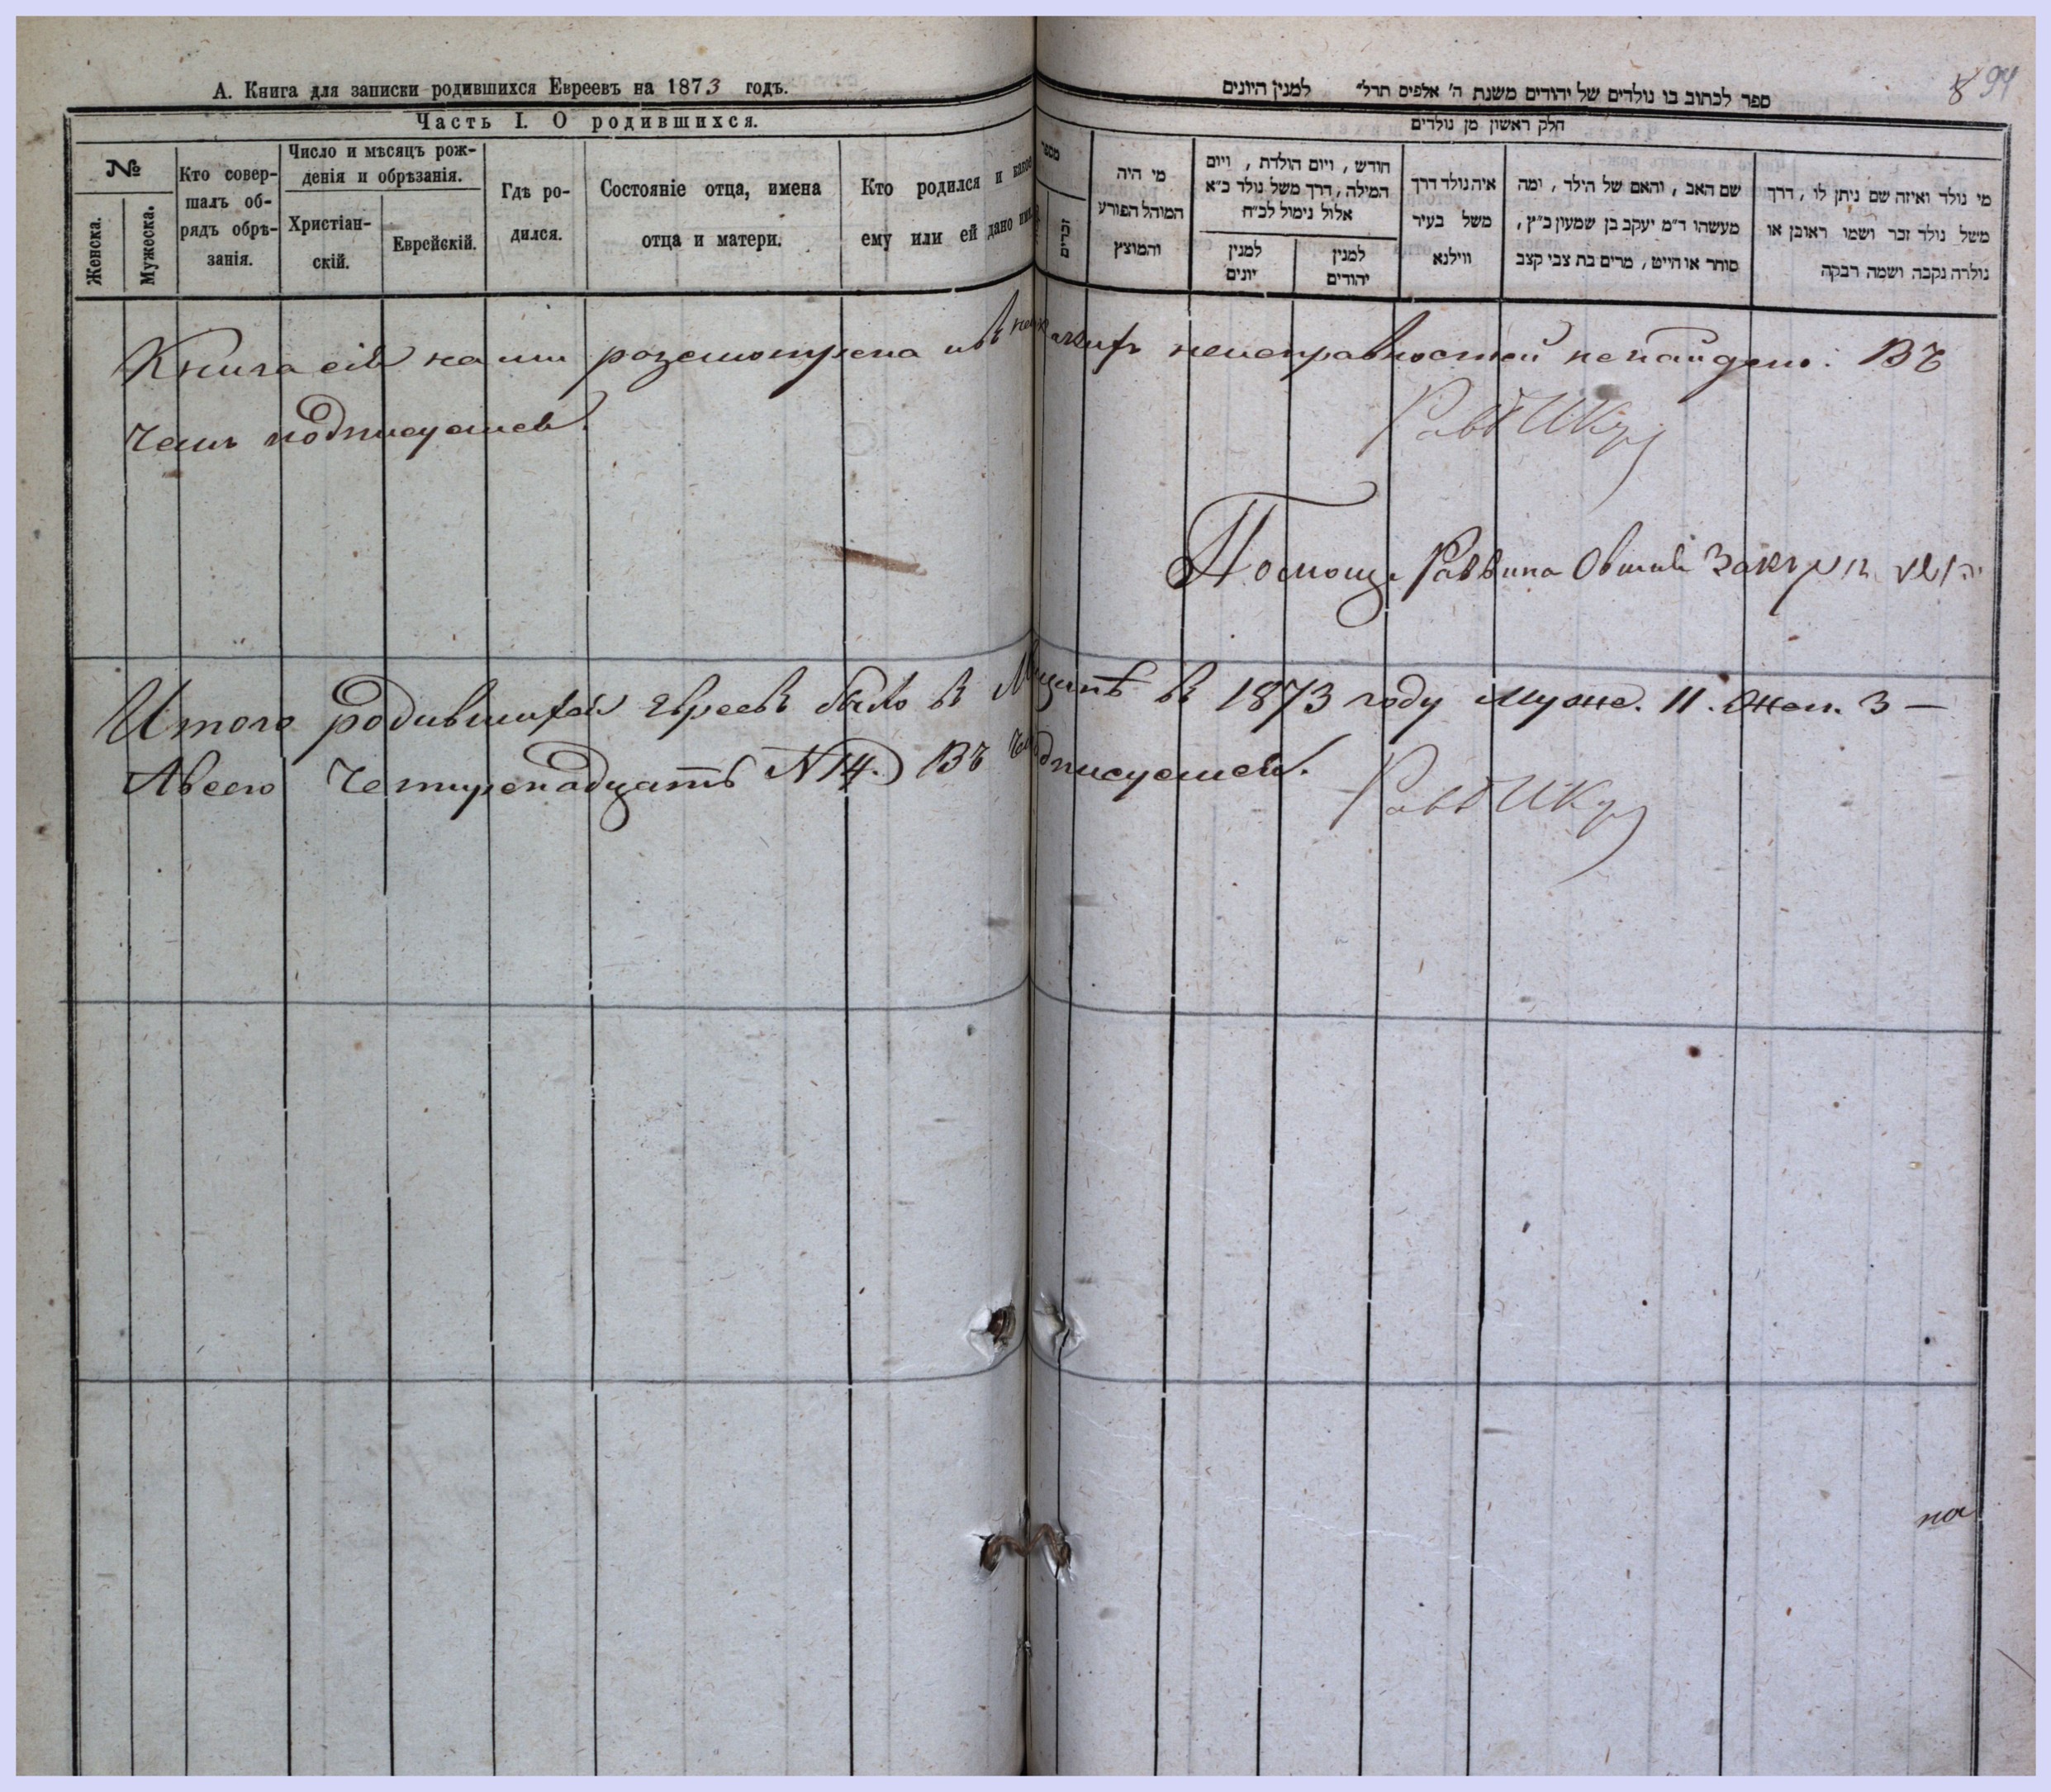 А. Книга для записки родившихся Евреевъ на 1873 годъ.
Часть I. О родившихся.
№
Женска.
Мужеска.
Кто совер-
шалъ об-
рядъ обрѣ-
занія.
Число и мѣсяцъ рож-
денія и обрѣзанія.
Христіан-
скій.
Еврейскій.
Гдѣ ро-
дился.
Состояніе отца, имена
отца и матери.
Кто родился и какое
ему или ей дано имя.
94
ספר לכתוב בו נולדים של יהודים משנת ה' אלפים תרל״ למנין היונים
חלק ראשון מן נולדים
מספר
זכרים
מי היה
המוהל הפורע
והמוצץ
חודש, ויום הולדת, ויום
המילה, דרך משל נולד כ״א
אלול נימול לכ״ח
למנין
יונים
למנין
יהודים
איה נולד דרך
משל בעיר
ווילנא
שם האב, והאם של הילד, ומה
מעשהו ד״מ יעקב בן שמעון כ״ץ,
סוחר או חייט, מרים בת צבי קצב
מי נולד ואיזה שם ניתן לו, דרך
משל נולד זכר ושמו ראובן או
נולדה נקבה ושמה רבקה
Книга сія нами розсмотрена и въ неисправностей не найдено. Въ
чемъ подписуемся.
Помощ. Раввина Овшій
Итого родившихся Евреевъ было в в 1873 году муже. 11. Жен. 3 —
Авсего Четыренадцать N 14. Въ чемъ подписуемся.
на